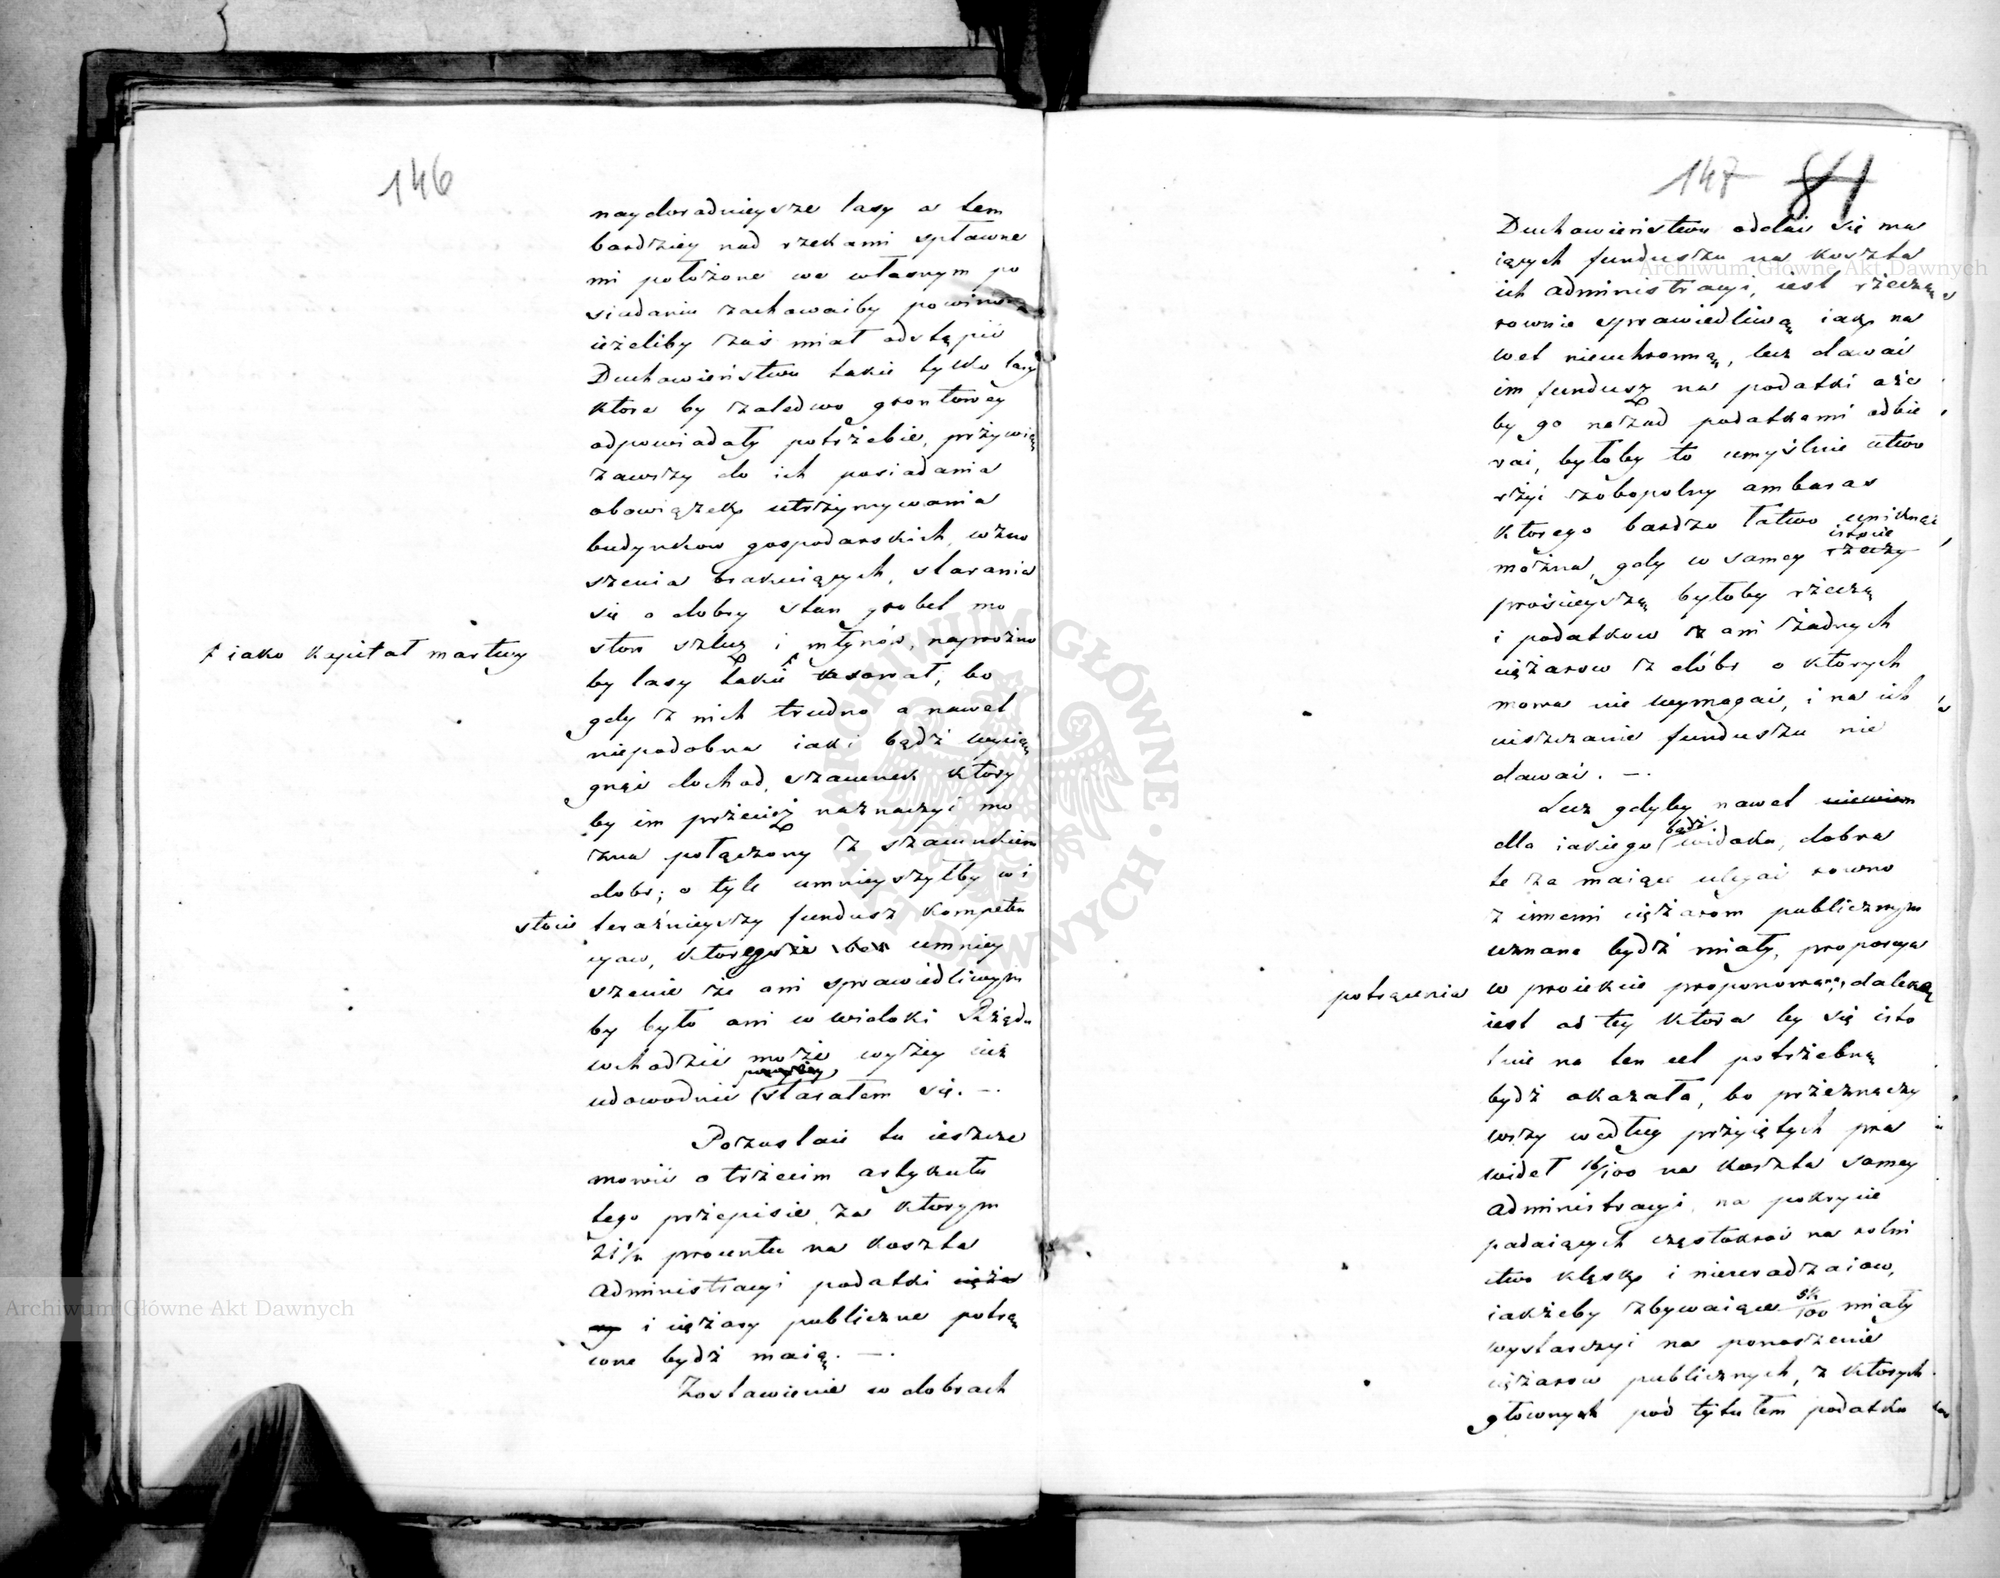 146
naydoradnieysze lasy a tem
bardziey nad rzekami spławne
mi położone we własnym po
siadaniu zachowaćby powinno
ieżeliby zaś miał odstąpić
Duchowieństwu takie tylko lasy
ktore by zaledwo grontowey
odpowiadały potrżebie, prżywią
zawszy do ich posiadania
obowiązek utrżymywania
budynkow gospodarskich, wzno
szenia brakuiących, starania
się o dobry stan grobel mo
stow szluz i młynów, naprożno
ł iako kapitał martwy
by lasy takie ł, bo
gdy z nich trudno a nawet
niepodobna iaki bądź wycią
gnąć dochod, szacunek ktory
by im prżecież naznaczyć mo
żna połączony z szacunkiem
dobr; o tyle umnieyszyłby wi
stocie teraźnieyszy fundusz kompeten
cyow, ktoregoże umniey
szenie że ani sprawiedliwym
by było ani w widoki Rżądu
wchodzić może wyżey iuż
udowodnić starałem się. —.
Pozostaie tu ieszcze
mowić o trżecim artykule
tego przepisie, za ktorym
21 1/2 procentu na koszta
administracyi podatki ciężar
ry i ciężary publiczne potrą
cone bydź maią. —.
Zostawienie w dobrach
147 81
Duchowieństwu oddać się ma
iących funduszu na koszta
ich administracyi, iest rżeczą
rownie sprawiedliwą iak na
wet nieuchronną, lecz dawać
im fundusz na podatki aże
by go nazad podatkami odbie
rać, byłoby to umyślnie utwo
rżyć zobopolny ambaras
ktorego bardzo łatwo uniknąć
istocie
można, gdy w samey rzeczy
prościeyszą byłoby rżeczą
i podatkow ani żadnych
ciężarow z dóbr o ktorych
mowa nie wymagać, i na ich
uiszczanie funduszu nie
dawać. —.
Lecz gdyby nawet niewiem
bądź
dla iakiego widoku, dobra
te za maiące ulegać rowno
z innemi ciężarom publicznym
uznane bydź miały, proporcya
potrącenia w proiekcie proponowana, daleką
iest od tey ktora by się isto
tnie na ten cel potrżebną
bydź okazała, bo prżeznaczy
wszy według prżyiętych pra
wideł 16/100 na koszta samey
administracyi, na pokrycie
padaiących częstokroć na rolni
ctwo klęsk i nieurodzaiow,
iakżeby zbywaiące 5 1/2/100 miały
wystarczyć na ponoszenie
ciężarow publicznych, z ktorych
głownych pod tytułem podatku